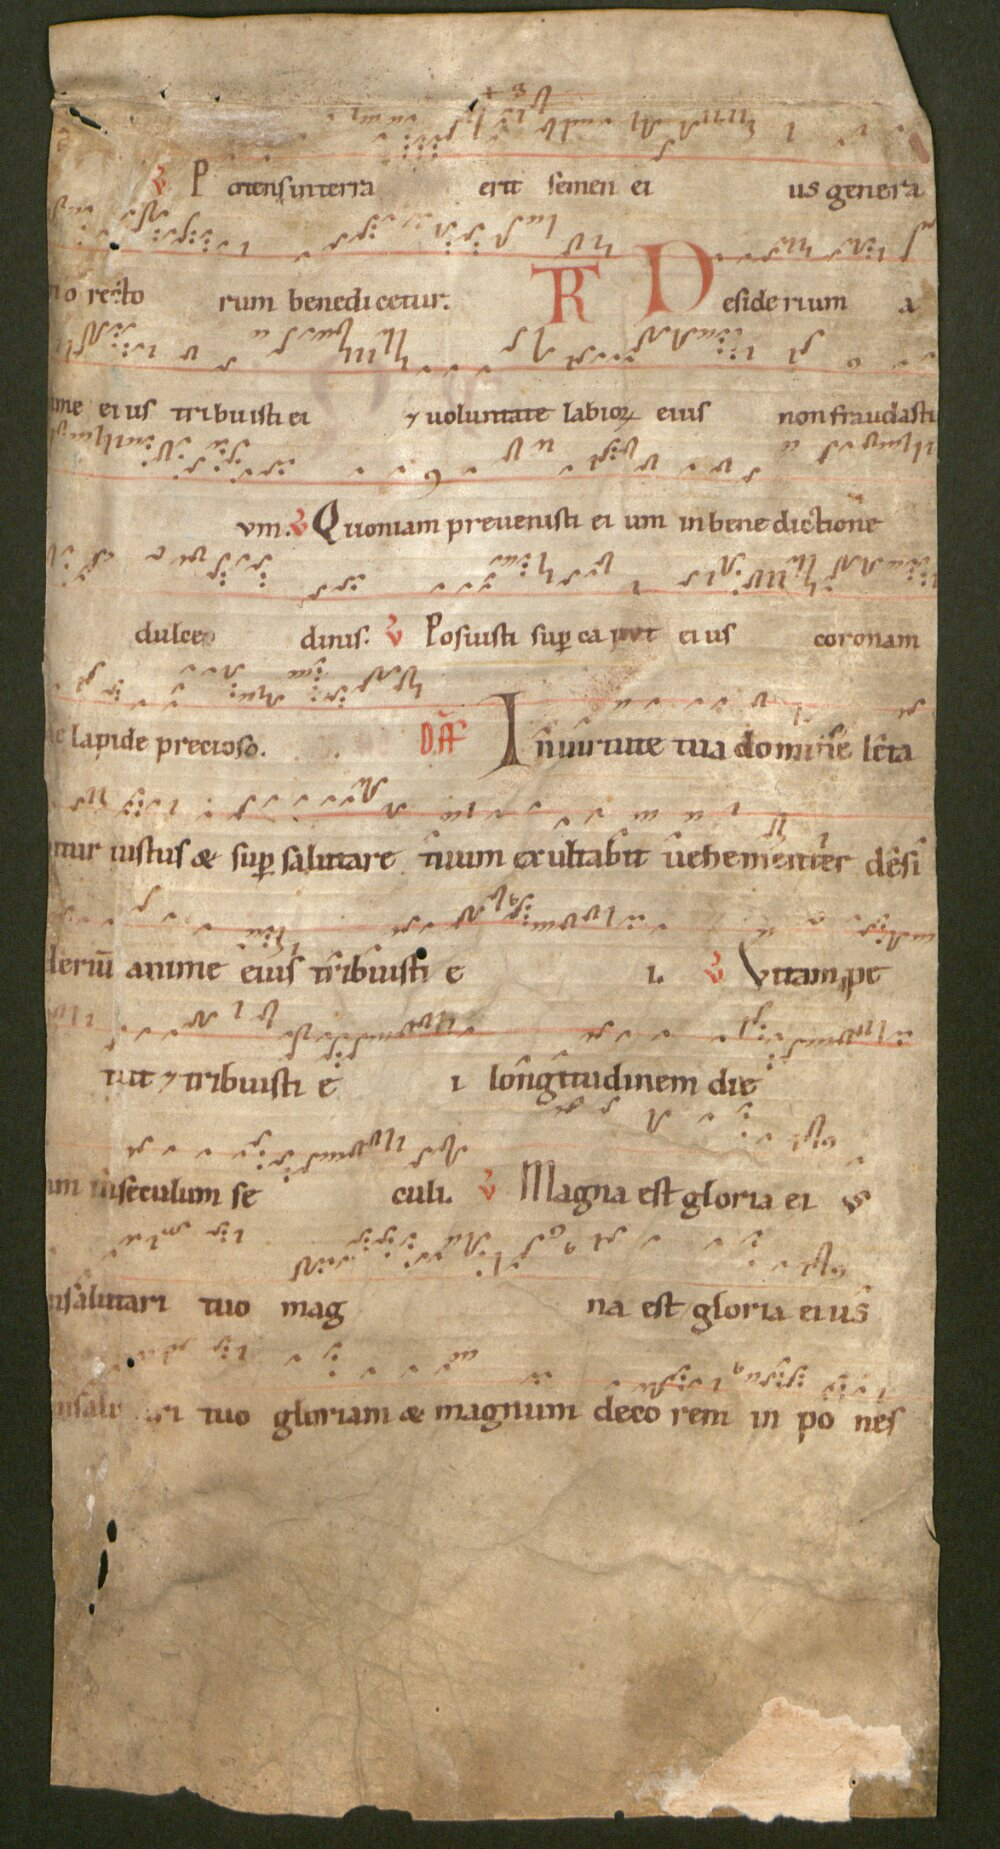 ℣ Potens in terra erit semen eius genera
o recto rum benedicetur. TR Desiderium a
me eius tribuisti ei ⁊ uoluntate labioꝝ eius non fraudasti
um. ℣ Quoniam prevenisti eium in benedictione
dulce dinis. ℣ Posuisti suꝑ caput eius coronam
e lapide precioso. Off In uirtute tua domine leta
tur iustus & suꝑ salutare tuum exultabit uehementer desi
deriū anime eius tribuisti e
i. ℣ Vitam pe
tiit ⁊ tribuisti e i longitudinem die
um in seculum se culi. ℣ Magna est gloria ei us
nsalutari tuo mag na est gloria eius
nsalu ari tuo gloriam & magnum decorem in po nes